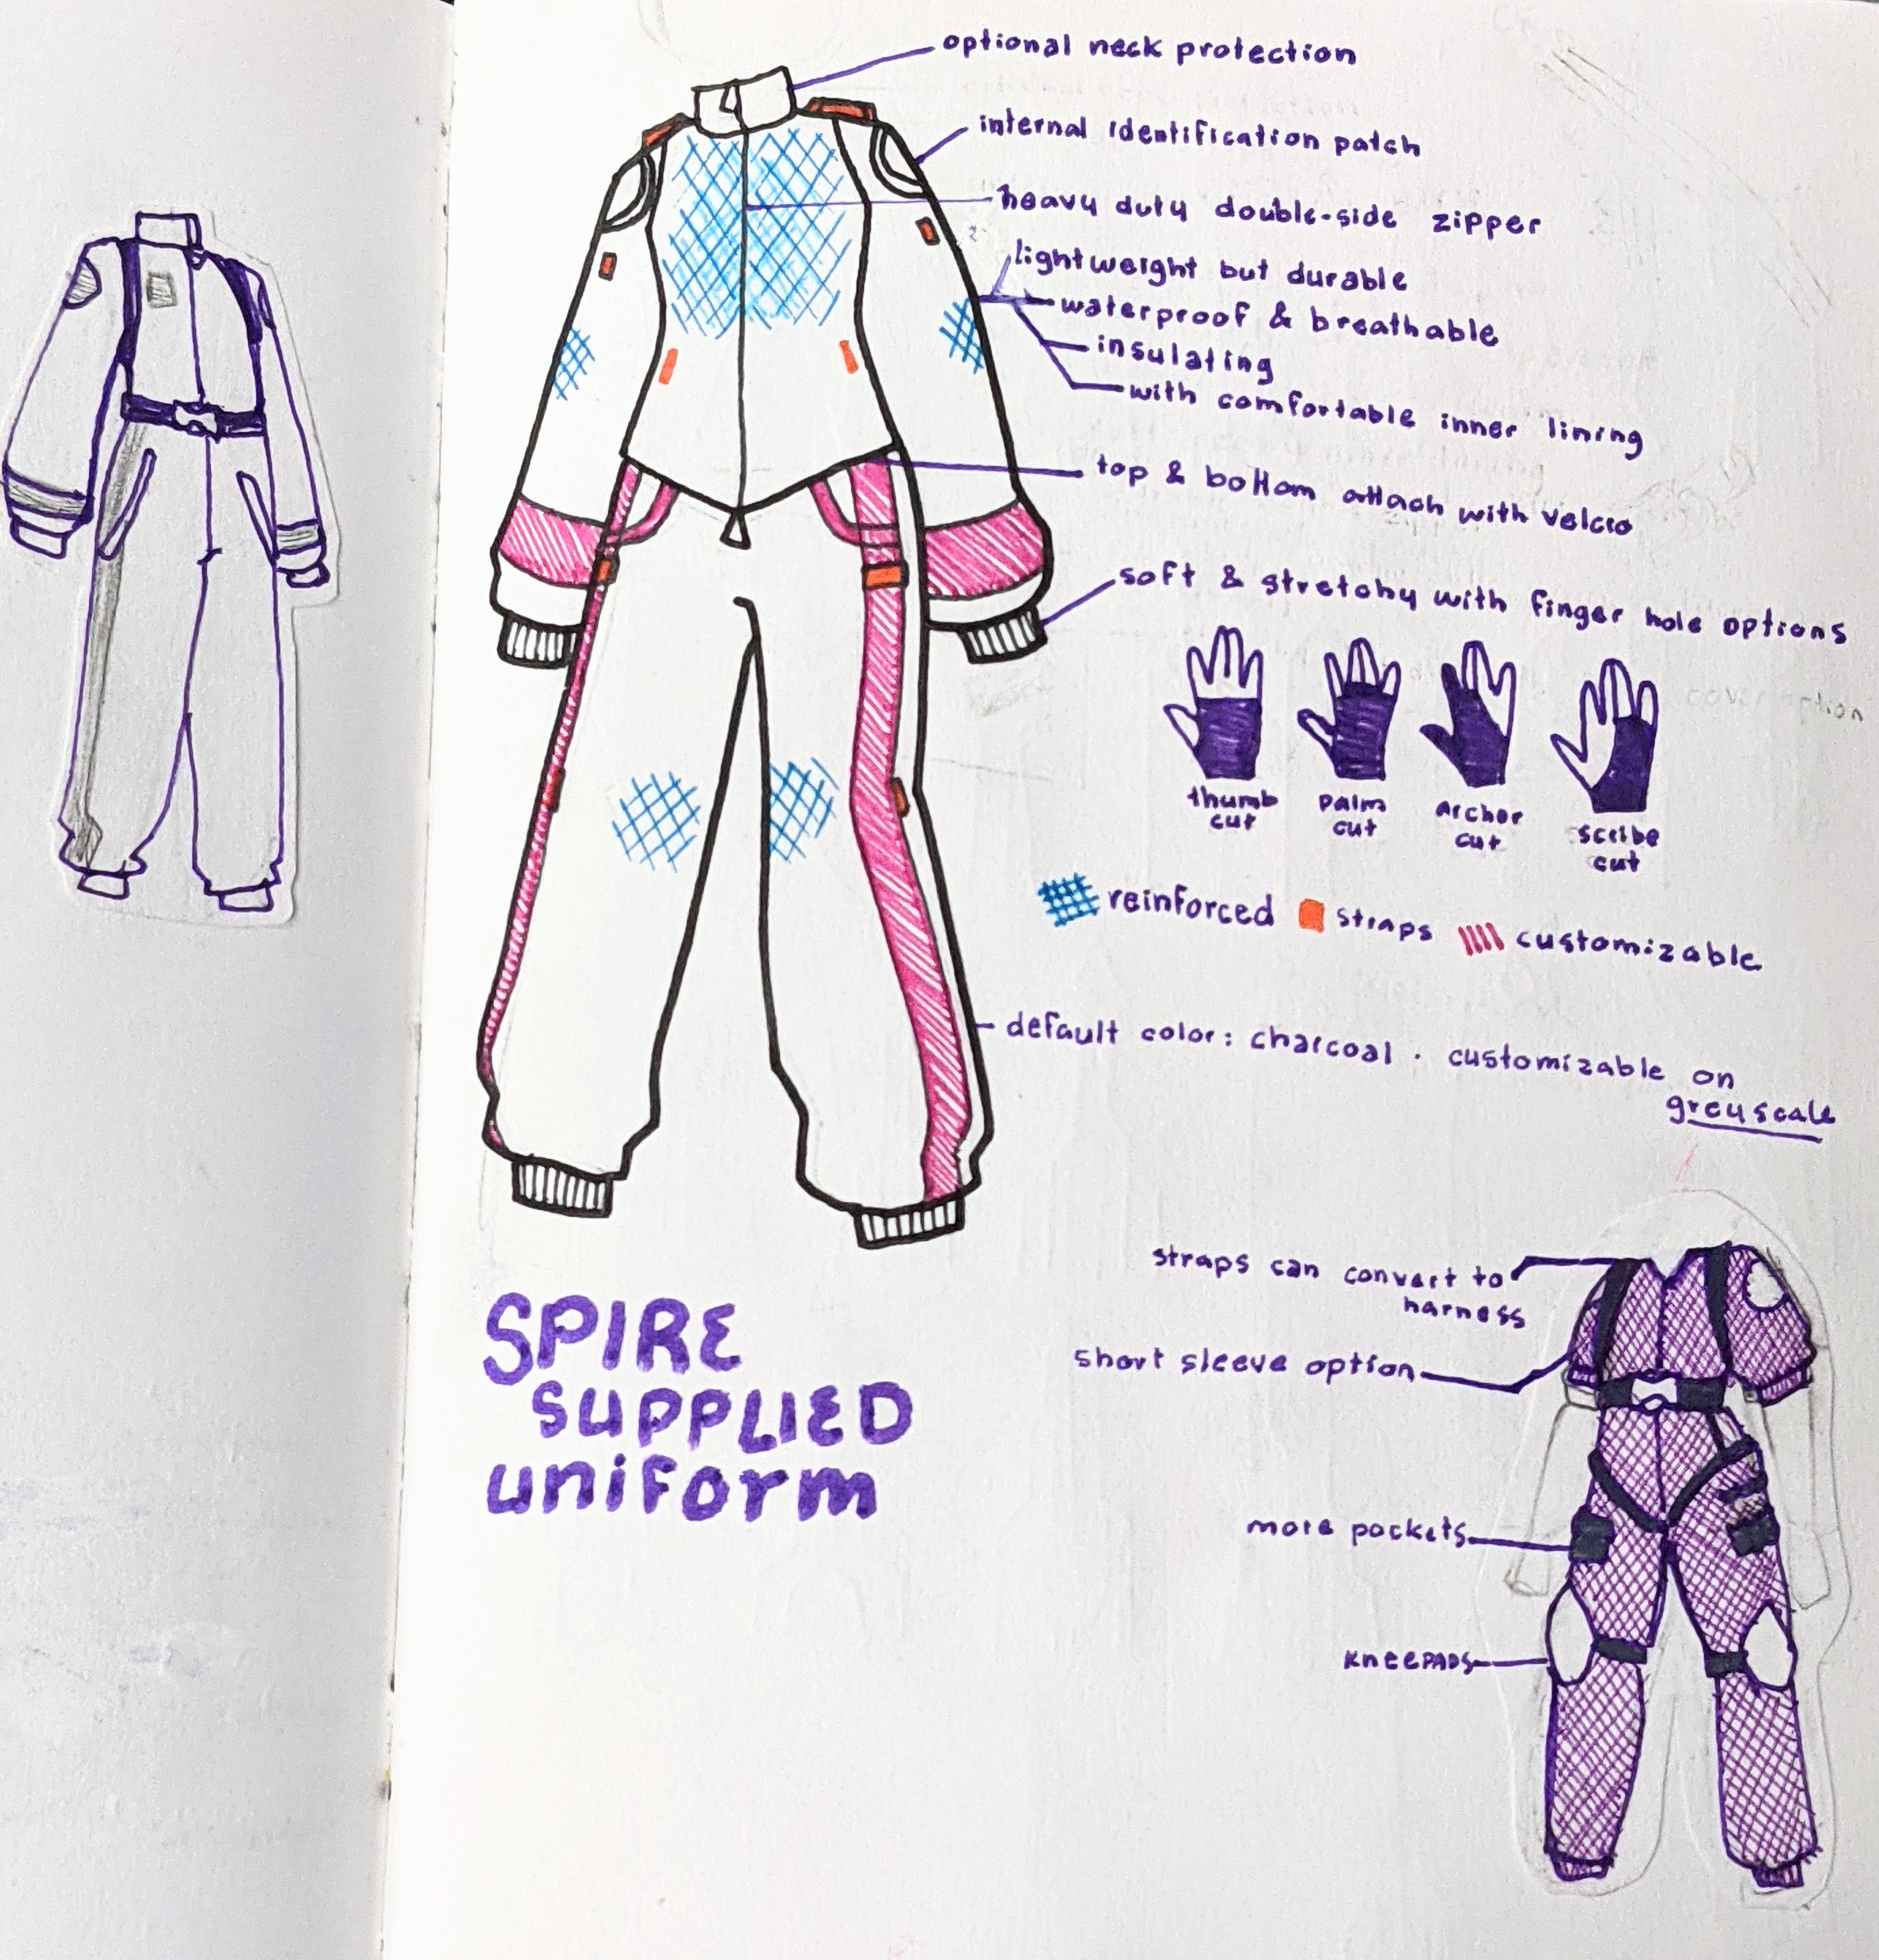 optional neck protection
internal identification patch
heavy duty double-side zipper
lightweight but durable
waterproof & breathable
insulating
with comfortable inner lining
top & bottom attach with velcro
soft & stretchy with finger hole options
thumb cut
palm cut
archer cut
scribe cut
reinforced straps customizable
default color: charcoal · customizable on
greyscale
straps can convert to
harness
short sleeve option
more pockets
KneePADS
SPIRE
SUPPLIED
uniform